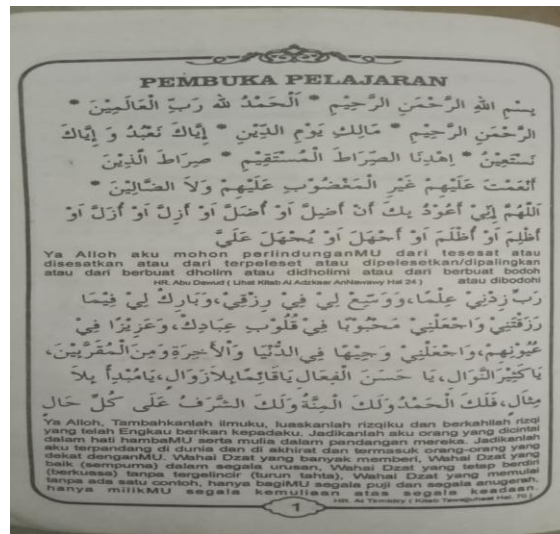 PEMBUKA PELAJARAN
بِسْمِ اللهِ الرَّحْمَنِ الرَّحِيْمِ * اَلْحَمْدُ لِلهِ رَبِّ الْعَالَمِيْنَ *
الرَّحْمَنِ الرَّحِيْمِ * مَالِكِ يَوْمِ الدِّيْنِ * إِيَّاكَ نَعْبُدُ وَ إِيَّاكَ
نَسْتَعِيْنُ * اِهْدِنَا الصِّرَاطَ الْمُسْتَقِيْمَ * صِرَاطَ الَّذِيْنَ
أَنْعَمْتَ عَلَيْهِمْ غَيْرِ الْمَغْضُوْبِ عَلَيْهِمْ وَلاَ الضَّالِّيْنَ *
اَللَّهُمَّ إِنِّيْ أَعُوْذُ بِكَ أَنْ أَضِلَّ اَوْ أُضَلَّ اَوْ أَزِلَّ اَوْ أُزَلَّ اَوْ
أَظْلِمَ اَوْ أُظْلَمَ اَوْ أَجْهَلَ اَوْ يُجْهَلَ عَلَيَّ
Ya Alloh aku mohon perlindunganMU dari tesesat atau
disesatkan atau dari terpeleset atau dipelesetkan/dipalingkan
atau dari berbuat dholim atau didholimi atau dari berbuat bodoh
atau dibodohi
HR. Abu Dawud ( Lihat Kitab Al Adzkaar AnNawawy Hal 24 )
رَبِّ زِدْنِيْ عِلْمًا، وَوَسِّعْ لِيْ فِيْ رِزْقِيْ، وَبَارِكْ لِيْ فِيْمَا
رَزَقْتَنِيْ وَاجْعَلْنِيْ مَحْبُوْبًا فِيْ قُلُوْبِ عِبَادِكَ، وَعَزِيْزًا فِيْ
عُيُوْنِهِمْ، وَاجْعَلْنِيْ وَجِيْهًا فِي الدُّنْيَا وَاْلآخِرَةِ وَمِنَ الْمُقَرَّبِيْنَ،
يَا كَثِيْرَ النَّوَالِ، يَا حَسَنَ الْفِعَالِ يَاقَائِمًا بِلاَ زَوَالٍ، يَامُبْدِأً بِلاَ
مِثَالٍ، فَلَكَ الْحَمْدُ وَلَكَ الْمِنَّةُ وَلَكَ الشَّرَفُ عَلَى كُلِّ حَالٍ
Ya Alloh, Tambahkanlah ilmuku, luaskanlah rizqiku dan berkahilah rizqi
yang telah Engkau berikan kepadaku. Jadikanlah aku orang yang dicintai
dalam hati hambaMU serta mulia dalam pandangan mereka. Jadikanlah
aku terpandang di dunia dan di akhirat dan termasuk orang-orang yang
dekat denganMU. Wahai Dzat yang banyak memberi, Wahai Dzat yang
baik (sempurna) dalam segala urusan, Wahai Dzat yang tetap berdiri
(berkuasa) tanpa tergelincir (turun tahta), Wahai Dzat yang memulai
tanpa ada satu contoh, hanya bagiMU segala puji dan segala anugerah,
hanya milikMU segala kemuliaan atas segala keadaan.
1